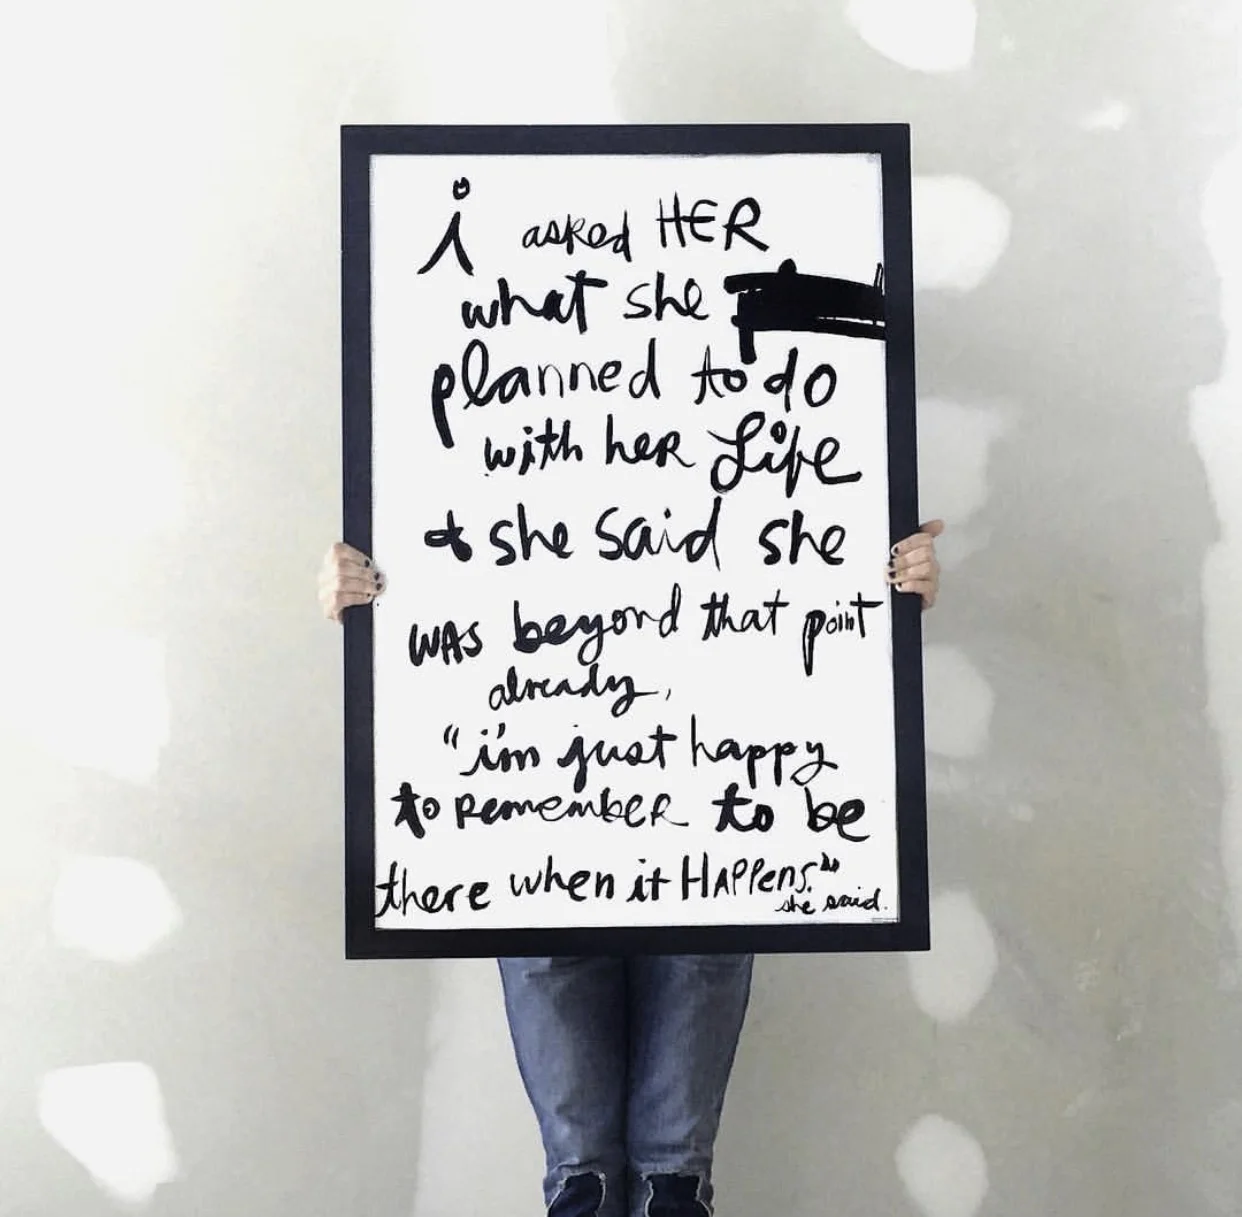 i asked HER
what she
planned to do
with her Life
& she said she
was beyond that point
already,
"i'm just happy
to Remember to be
there when it HAPPens."
she said.